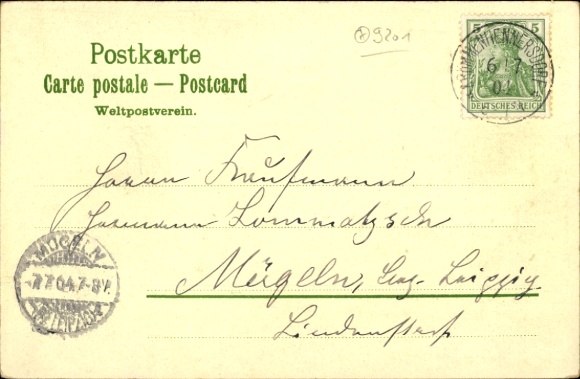 9201
Postkarte
Carte postale — Postcard
Weltpostverein.
5 5
DEUTSCHES REICH
Herrn Kaufmann
Hermann Lommatzsch
Mügeln, Bez. Leipzig
Lindenstraße
MÜGELN
7.7.04.7-8V.
(BZ. LEIPZIG)